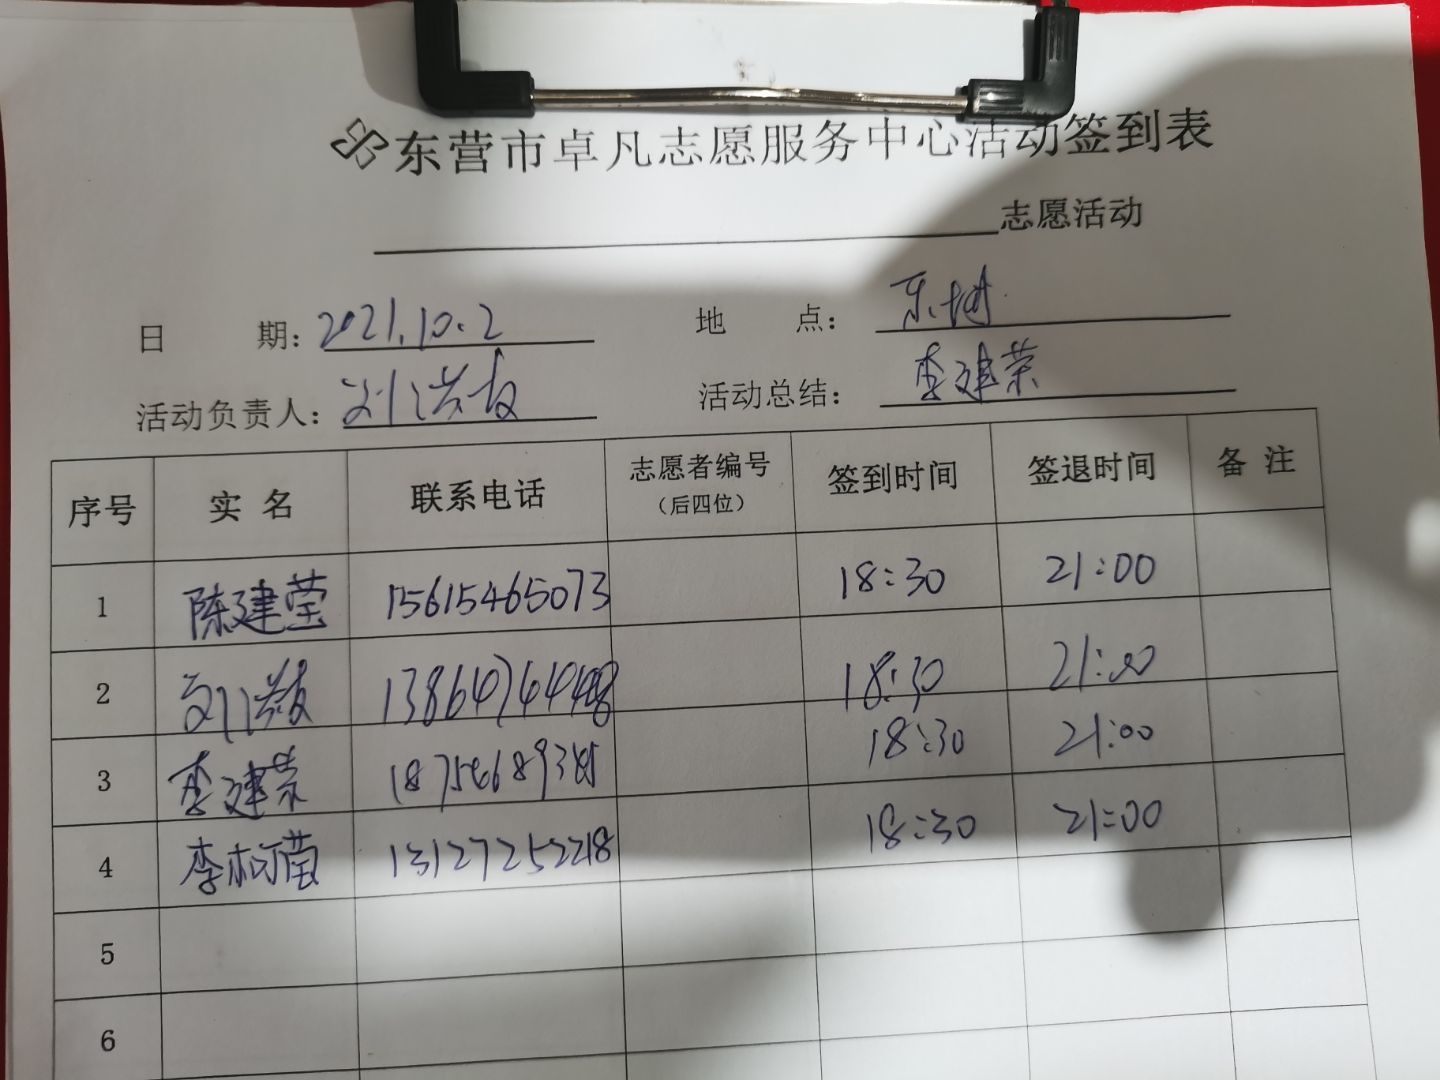 东营市卓凡志愿服务中心活动签到表
志愿活动
日 期：2021.10.2 地 点：东城
活动负责人：刘洪友 活动总结：李建荣
序号 实名 联系电话 志愿者编号（后四位） 签到时间 签退时间 备注
1 陈建莹 15615465073 18:30 21:00
2 刘洪友 18:30 21:00
3 李建荣 18:30 21:00
4 李柯莹 13127252218 18:30 21:00
5
6